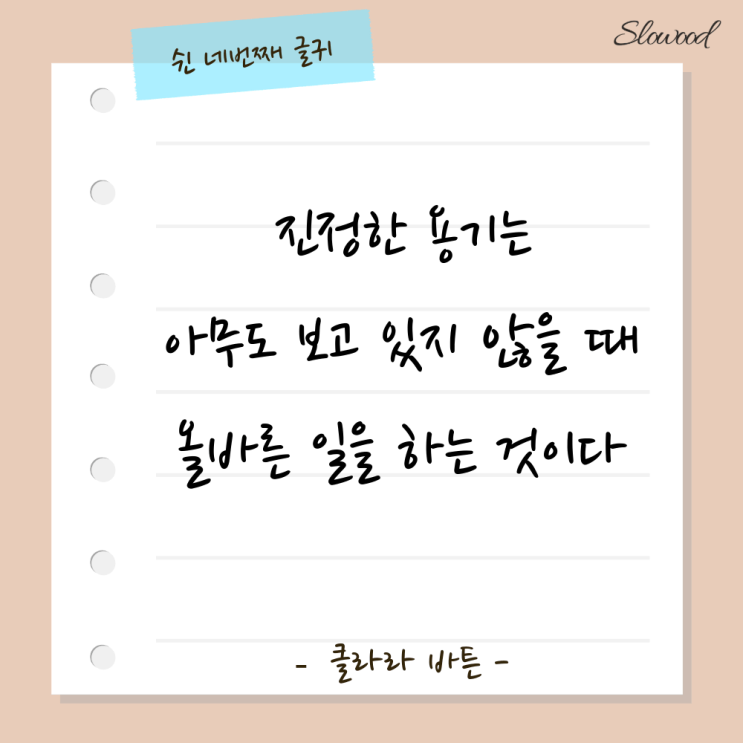 쉰 네번째 글귀
Slowood
진정한 용기는
아무도 보고 있지 않을 때
올바른 일을 하는 것이다
- 클라라 바튼 -